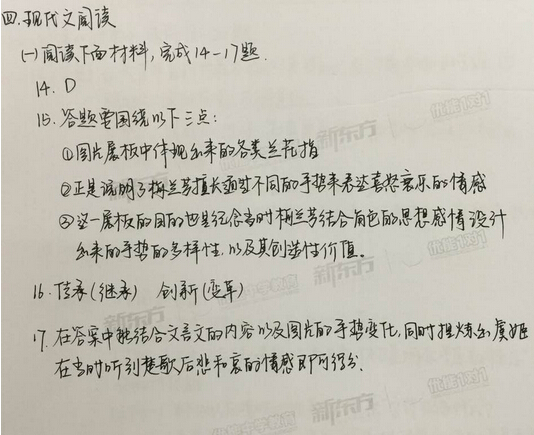 四.现代文阅读
(一)阅读下面材料,完成14-17题.
14. D
15. 答题要围绕以下三点:
①图片展板中体现出来的各类兰花指
②正是说明了梅兰芳擅长通过不同的手势来表达喜怒哀乐的情感
③这一展板的目的也是纪念当时梅兰芳结合角色的思想感情设计
出来的手势的多样性,以及其创造性价值。
16. 传承(继承) 创新(变革)
17. 在答案中能结合文言文的内容以及图片的手势变化,同时提炼出虞姬
在当时听到楚歌后悲和哀的情感即可得分.
新东方
优能1对1
新东方
优能中学教育
新东方
优能1对1